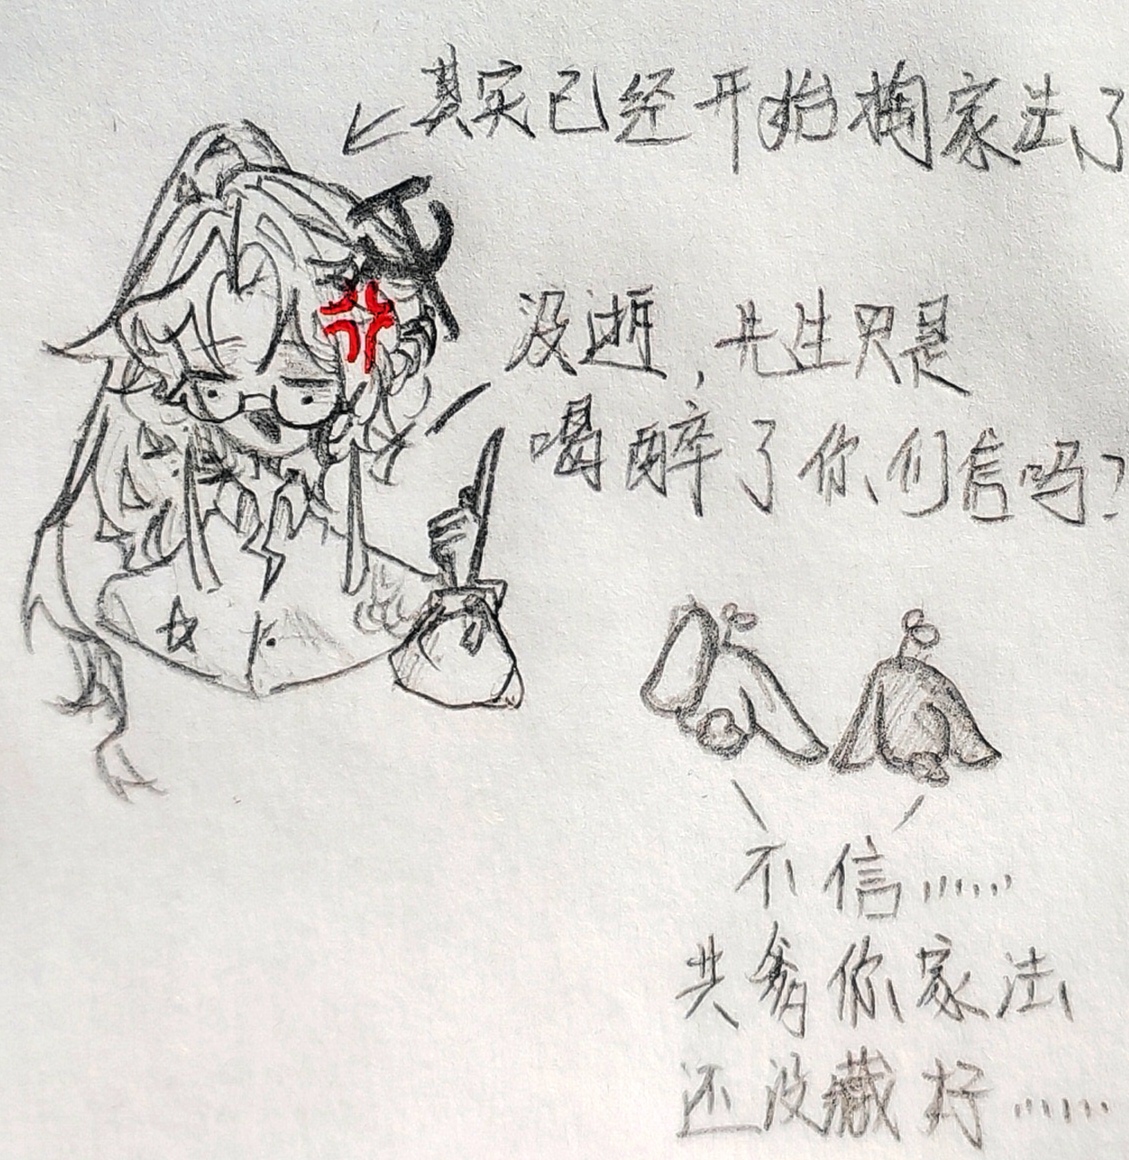 其实已经开始掏家法了
没逝，先生只是
喝醉了你们信吗？
不信……
共爹你家法
还没藏好……